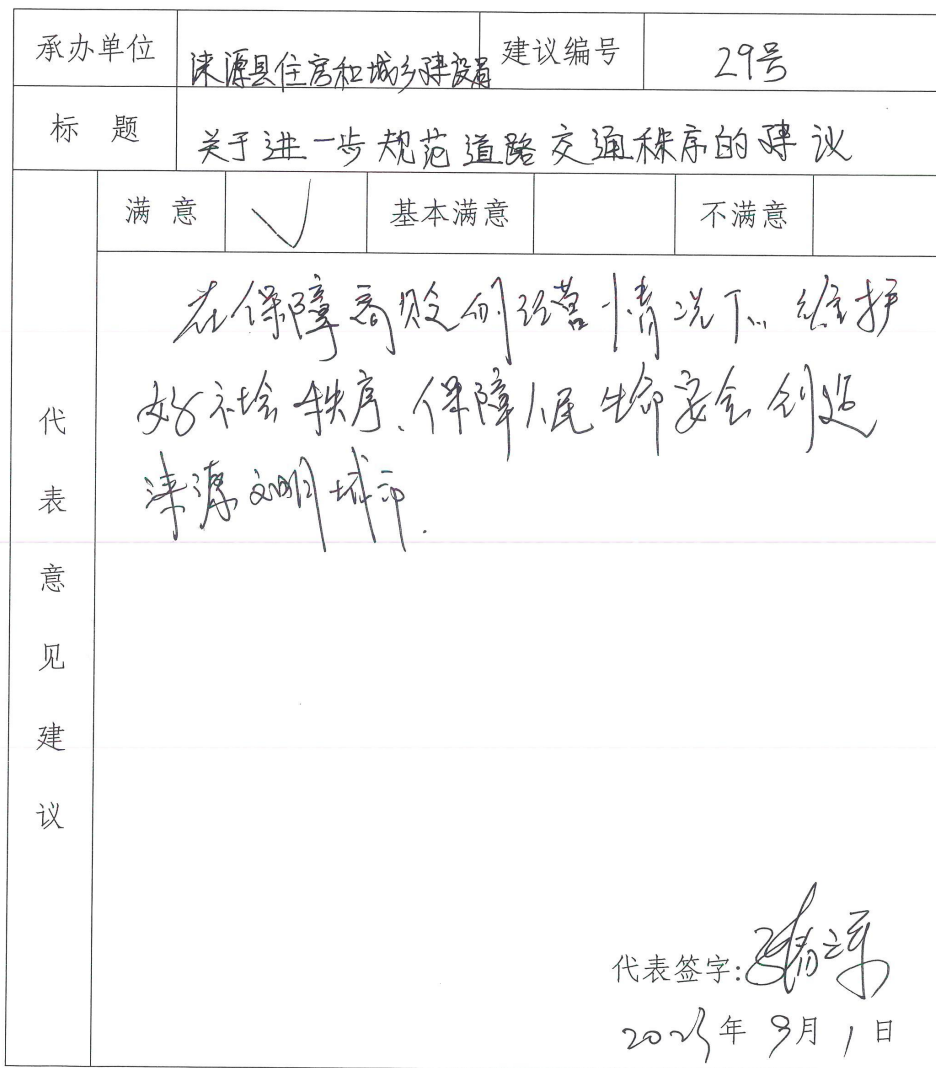 承办单位 涞源县住房和城乡建设局 建议编号 29号
标 题 关于进一步规范道路交通秩序的建议
满 意 √ 基本满意 不满意
代表意见建议
在保障商贩们经营情况下,维护
好社会秩序、保障人民生命安全创造
涞源文明城市.
代表签字:
年 9月1日